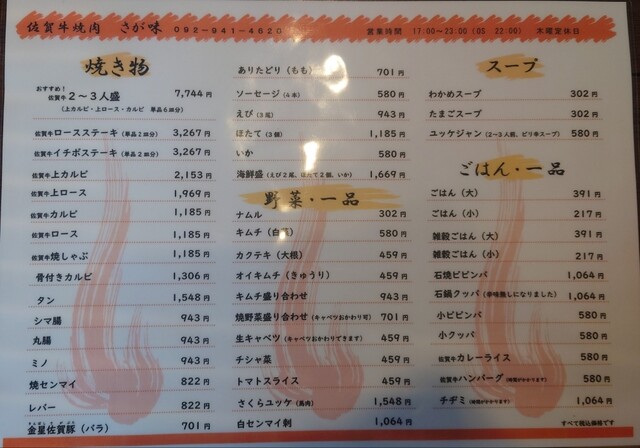 佐賀牛焼肉 さが味 092-941-4620 営業時間 17:00~23:00(OS 22:00) 木曜定休日
焼き物
おすすめ!
佐賀牛 2~3人盛 7,744円
(上カルビ・上ロース・カルビ 単品6皿分)
佐賀牛 ロースステーキ(単品2皿分) 3,267円
佐賀牛 イチボステーキ(単品2皿分) 3,267円
佐賀牛 上カルビ 2,153円
佐賀牛 上ロース 1,969円
佐賀牛 カルビ 1,185円
佐賀牛 ロース 1,185円
佐賀牛 焼しゃぶ 1,185円
骨付きカルビ 1,306円
タン 1,548円
シマ腸 943円
丸腸 943円
ミノ 943円
焼センマイ 822円
レバー 822円
金星佐賀豚(バラ) 701円
ありたどり(もも) 701円
ソーセージ(4本) 580円
えび(3尾) 943円
ほたて(3個) 1,185円
いか 580円
海鮮盛(えび2尾、ほたて2個、いか) 1,669円
野菜・一品
ナムル 302円
キムチ(白菜) 580円
カクテキ(大根) 459円
オイキムチ(きゅうり) 459円
キムチ盛り合わせ 943円
焼野菜盛り合わせ(キャベツおかわり可) 701円
生キャベツ(キャベツおかわりできます) 459円
チシャ菜 459円
トマトスライス 459円
さくらユッケ(馬肉) 1,548円
白センマイ刺 1,064円
スープ
わかめスープ 302円
たまごスープ 302円
ユッケジャン(2~3人前、ピリ辛スープ) 580円
ごはん・一品
ごはん(大) 391円
ごはん(小) 217円
雑穀ごはん(大) 391円
雑穀ごはん(小) 257円
石焼ビビンバ 1,064円
石鍋クッパ(辛味無しになりました) 1,064円
小ビビンバ 580円
小クッパ 580円
佐賀牛 カレーライス 580円
佐賀牛 ハンバーグ(時間がかかります) 580円
チヂミ(時間がかかります) 1,064円
すべて税込価格です